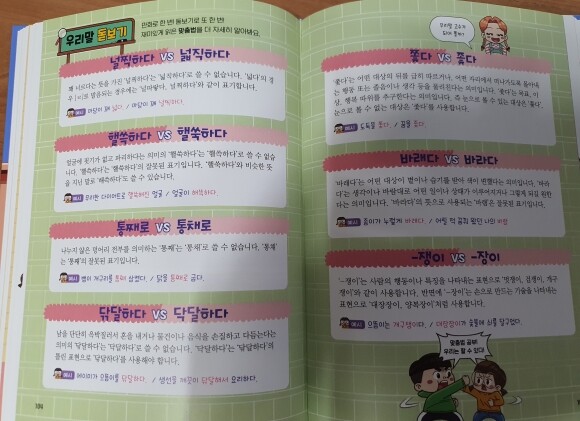 우리말 돋보기
만화로 한 번! 돋보기로 또 한 번!
재미있게 읽은 맞춤법을 더 자세히 알아봐요.
널찍하다 VS 넓직하다
꽤 너르다는 뜻을 가진 '널찍하다'는 '넓직하다'로 쓸 수 없습니다. '넓다'의 경
우 [ㄹ]로 발음되는 경우에는 '널따랗다, 널찍하다'와 같이 표기합니다.
예시 마당이 꽤 넓다. / 마당이 꽤 널찍하다.
핼쑥하다 VS 핼쓱하다
얼굴에 핏기가 없고 파리하다는 의미의 '핼쑥하다'는 '핼쓱하다'로 쓸 수 없습
니다. '핼쓱하다'는 '핼쑥하다'의 잘못된 표기입니다. '핼쑥하다'와 비슷한 뜻
을 지닌 말로 '해쓱하다'도 쓸 수 있습니다.
예시 무리한 다이어트로 핼쑥해진 얼굴 / 얼굴이 해쓱하다.
통째로 VS 통채로
나누지 않은 덩어리 전부를 의미하는 '통째'는 '통채'로 쓸 수 없습니다. '통채'
는 '통째'의 잘못된 표기입니다.
예시 뱀이 개구리를 통째 삼켰다. / 닭을 통째로 굽다.
닦달하다 VS 닥달하다
남을 단단히 윽박질러서 혼을 내거나 물건이나 음식을 손질하고 다듬는다는
의미의 '닦달하다'는 '닥달하다'로 쓸 수 없습니다. '닥달하다'는 '닦달하다'의
틀린 표현으로 '닦달하다'를 사용해야 합니다.
예시 메이미가 으뜸이를 닦달하다. / 생선을 깨끗이 닦달해서 요리하다.
106
우리말 고수가
되어 볼까?
쫓다 VS 좇다
'쫓다'는 어떤 대상의 뒤를 급히 따르거나, 어떤 자리에서 떠나가도록 몰아내
는 행동 또는 졸음이나 생각 등을 물리친다는 의미입니다. '좇다'는 목표, 이
상, 행복 따위를 추구한다는 의미입니다. 즉 눈으로 볼 수 있는 대상은 '쫓다',
눈으로 볼 수 없는 대상은 '좇다'를 사용합니다.
예시 도둑을 쫓다. / 꿈을 좇다.
바래다 VS 바라다
'바래다'는 어떤 대상이 볕이나 습기를 받아 색이 변했다는 의미입니다. '바라
다'는 생각이나 바람대로 어떤 일이나 상태가 이루어지거나 그렇게 되길 원한
다는 의미입니다. '바라다'의 뜻으로 사용되는 '바램'은 잘못된 표기입니다.
예시 종이가 누렇게 바래다. / 어릴 적 꿈꿔 왔던 나의 바람
-쟁이 VS -장이
'-쟁이'는 사람의 행동이나 특징을 나타내는 표현으로 '멋쟁이, 겁쟁이, 개구
쟁이'와 같이 사용합니다. 반면에 '-장이'는 손으로 만드는 기술을 나타내는
표현으로 '대장장이, 양복장이'처럼 사용합니다.
예시 으뜸이는 개구쟁이다. / 대장장이가 숯불에 쇠를 달구었다.
맞춤법 공부!
우리는 할 수 있다!